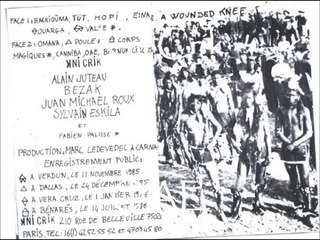 FACE 1: BACXIÒUMA, TUT, HOPI, EINA, A WOUNDED KNEE
OUARGA, VAL'E*.
FACE 2: OMANA, POULE, CORPS
MAGIQUES*, CANNIBA, OAE,
ЖNI CRIK
ALAIN JUTEAU
BEZAK
JUAN MICHAEL ROUX
SYLVAIN ESKILA
ET
FABIEN PALISSE.
PRODUCTION: MARC LEDEVEDEC A CARNAC
ENREGISTREMENT PUBLIC:
A VERDUN, LE 11 NOVEMBRE 1985.
A DALLAS, LE 24 DÉCEMBRE 1985
A VERA CRUZ, LE 1 JANVIER
A BÉNARÈS, LE 14 JUIL ET 1986
ЖNI CRIK 210 RUE DE BELLEVILLE 75020
PARIS, TEL: 16(1) 42 52 55 52 ET 47 09 45 80